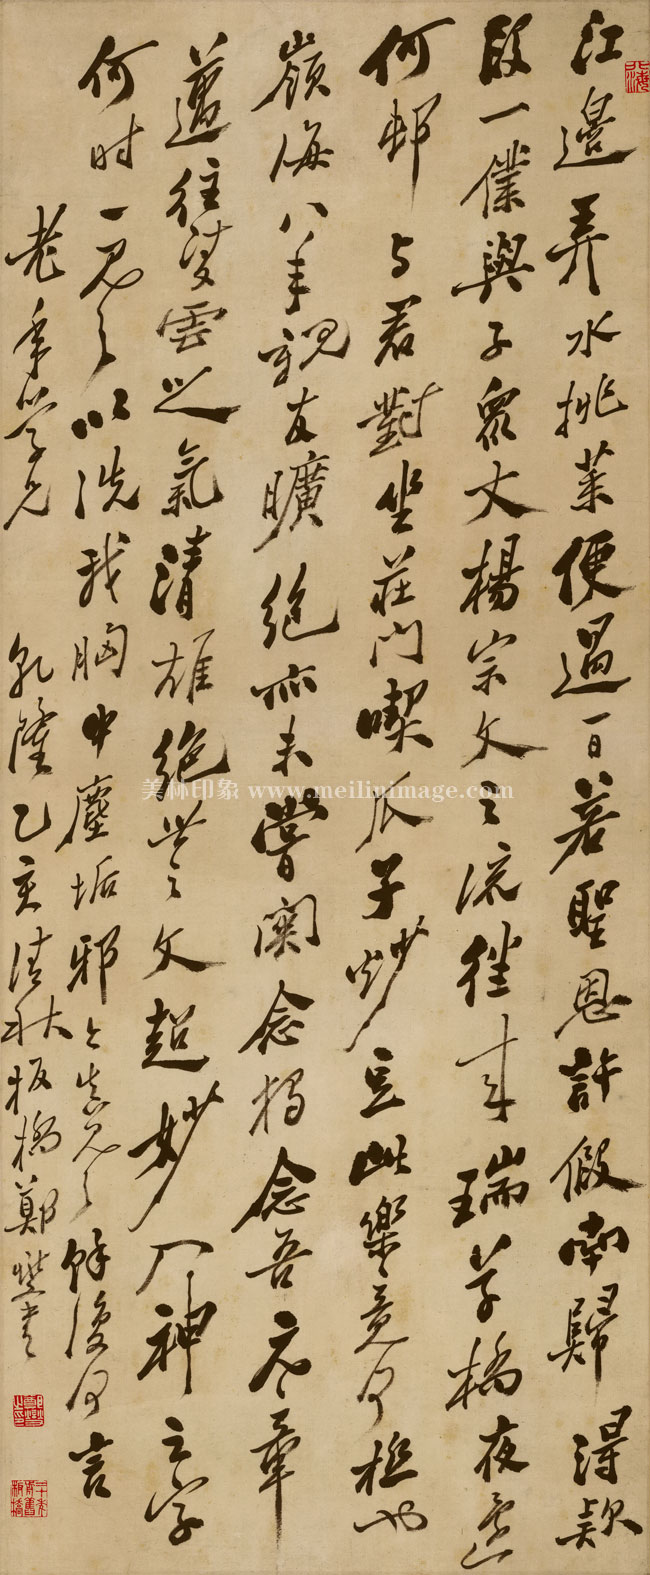 江邊弄水挑菜便過一日若聖恩許假南歸得款
段一僕與子眾丈楊宗文之流往來瑞草橋夜還
何邨与君對坐莊門喫瓜子炒豆此樂竟何極也
嶺海八年親友曠絕亦未嘗關念獨念吾元章
邁往凌雲之氣清雄絕世之文超妙入神之字
何時一見之以洗我胸中塵垢邪今真見之餘復何言
老年學兄 乾隆乙亥清秋板橋鄭燮書
美林印象 www.meilinimage.com